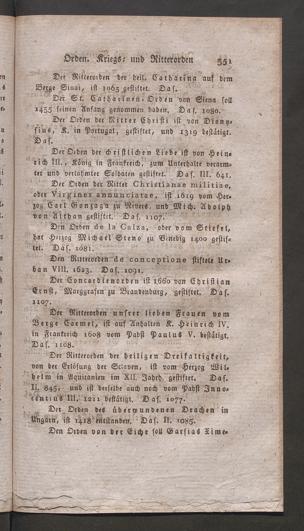 Orden. Kriegs: und Ritterorden 551
Der Ritterorden der heil. Catharina auf dem
Berge Sinai, ist 1063 gestiftet. Das.
Der St. Catharinen-Orden von Siena soll
1455 seinen Anfang genommen haben. Das. 1080.
Der Orden der Ritter Christi ist von Diony-
sius, K. in Portugal, gestiftet, und 1319 bestätigt.
Das.
Der Orden der christlichen Liebe ist von Hein-
rich III., König in Frankreich, zum Unterhalte verarm-
ter und verlahmter Soldaten gestiftet. Das. III. 641.
Der Orden der Ritter Christianae militiae,
oder Virginis annunciatae, ist 1619 vom Her-
zog Carl Gonzaga zu Nevers, und Mich. Adolph
von Althan gestiftet. Das. 1107.
Den Orden de la Calza, oder vom Stiefel,
hat Herzog Michael Steno zu Venedig 1400 gestif-
tet. Das. 1081.
Den Ritterorden de conceptione stiftete Ur-
ban VIII. 1623. Das. 1091.
Der Concordienorden ist 1660 von Christian
Ernst, Marggrafen zu Brandenburg, gestiftet. Das.
1107.
Der Ritterorden unsrer lieben Frauen vom
Berge Carmel, ist auf Anhalten K. Heinrich IV.
in Frankreich 1608 vom Pabst Paulus V. bestätigt.
Das. 1108.
Der Ritterorden der heiligen Dreifaltigkeit,
von der Erlösung der Sclaven, ist vom Herzog Wil-
helm in Aquitanien im XII. Jahrh. gestiftet. Das.
II. 845. und ist derselbe auch noch vom Pabst Inno-
centius III. 1211 bestätigt. Das. 1077.
Der Orden des überwundenen Drachen in
Ungarn, ist 1418 entstanden. Das. II. 1085.
Den Orden von der Eiche soll Garsias Xime-